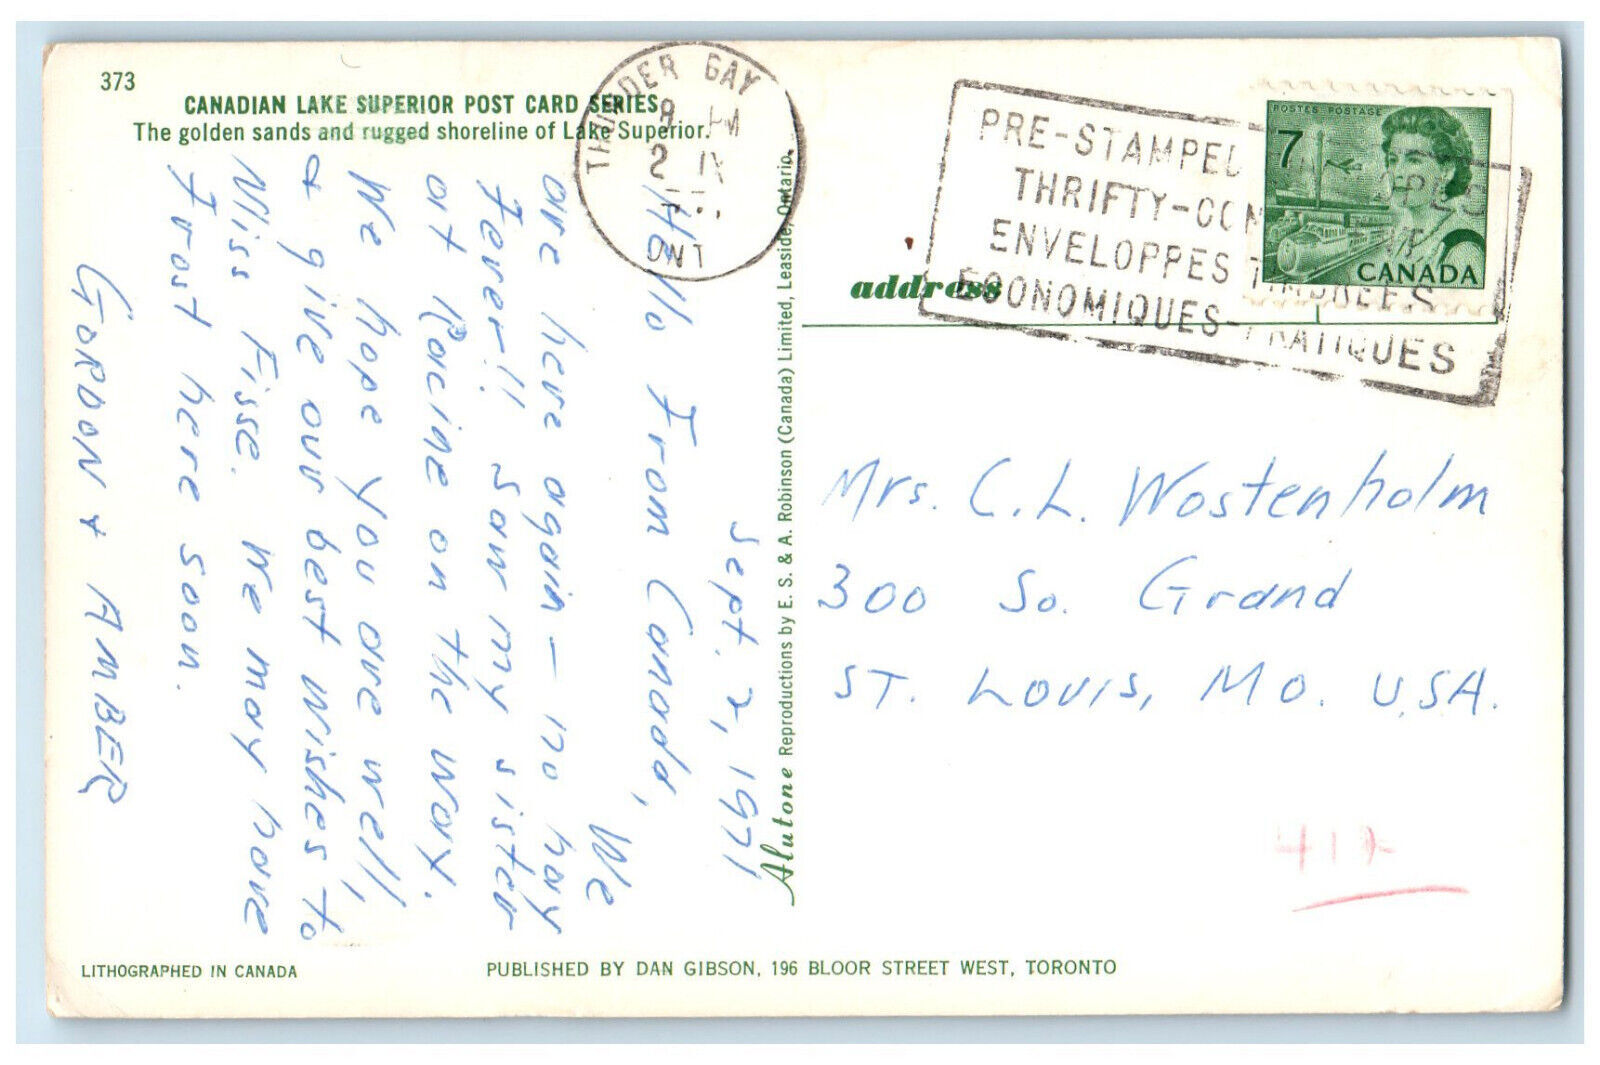 373
CANADIAN LAKE SUPERIOR POST CARD SERIES
The golden sands and rugged shoreline of Lake Superior.
Sept. 2, 1971
Hello From Canada,
We
are here again - no hay
Fever!! Saw my sister
at Racine on the way.
We hope you are well,
& give our best wishes to
Miss Fisse. We may have
Frost here soon.
GORDON & AMBER
LITHOGRAPHED IN CANADA
PUBLISHED BY DAN GIBSON, 196 BLOOR STREET WEST, TORONTO
Alutone Reproductions by E. S. & A. Robinson (Canada) Limited, Leaside, Ontario.
THUNDER BAY
8 PM
2 IX
ONT
PRE-STAMPED
THRIFTY-CON
ENVELOPPES TIMBREES
ECONOMIQUES-PRATIQUES
POSTES POSTAGE
7
CANADA
address
Mrs. C. L. Wostenholm
300 So. Grand
ST. LOUIS, MO. U.S.A.